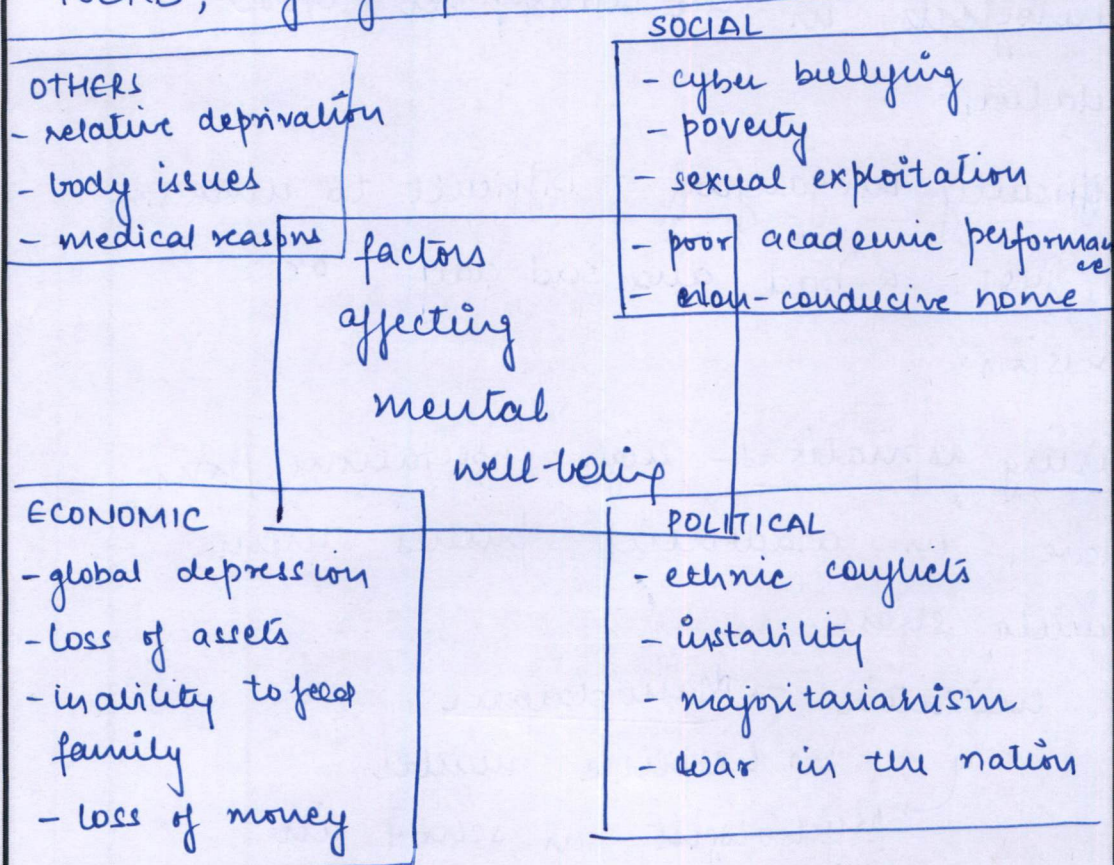 OTHERS
- relative deprivation
- body issues
- medical reasons
SOCIAL
- cyber bullying
- poverty
- sexual exploitation
- poor academic performance
- non-conducive home
factors
affecting
mental
well being
ECONOMIC
- global depression
- loss of assets
- inability to feed
family
- loss of money
POLITICAL
- ethnic conflicts
- instability
- majoritarianism
- war in the nation